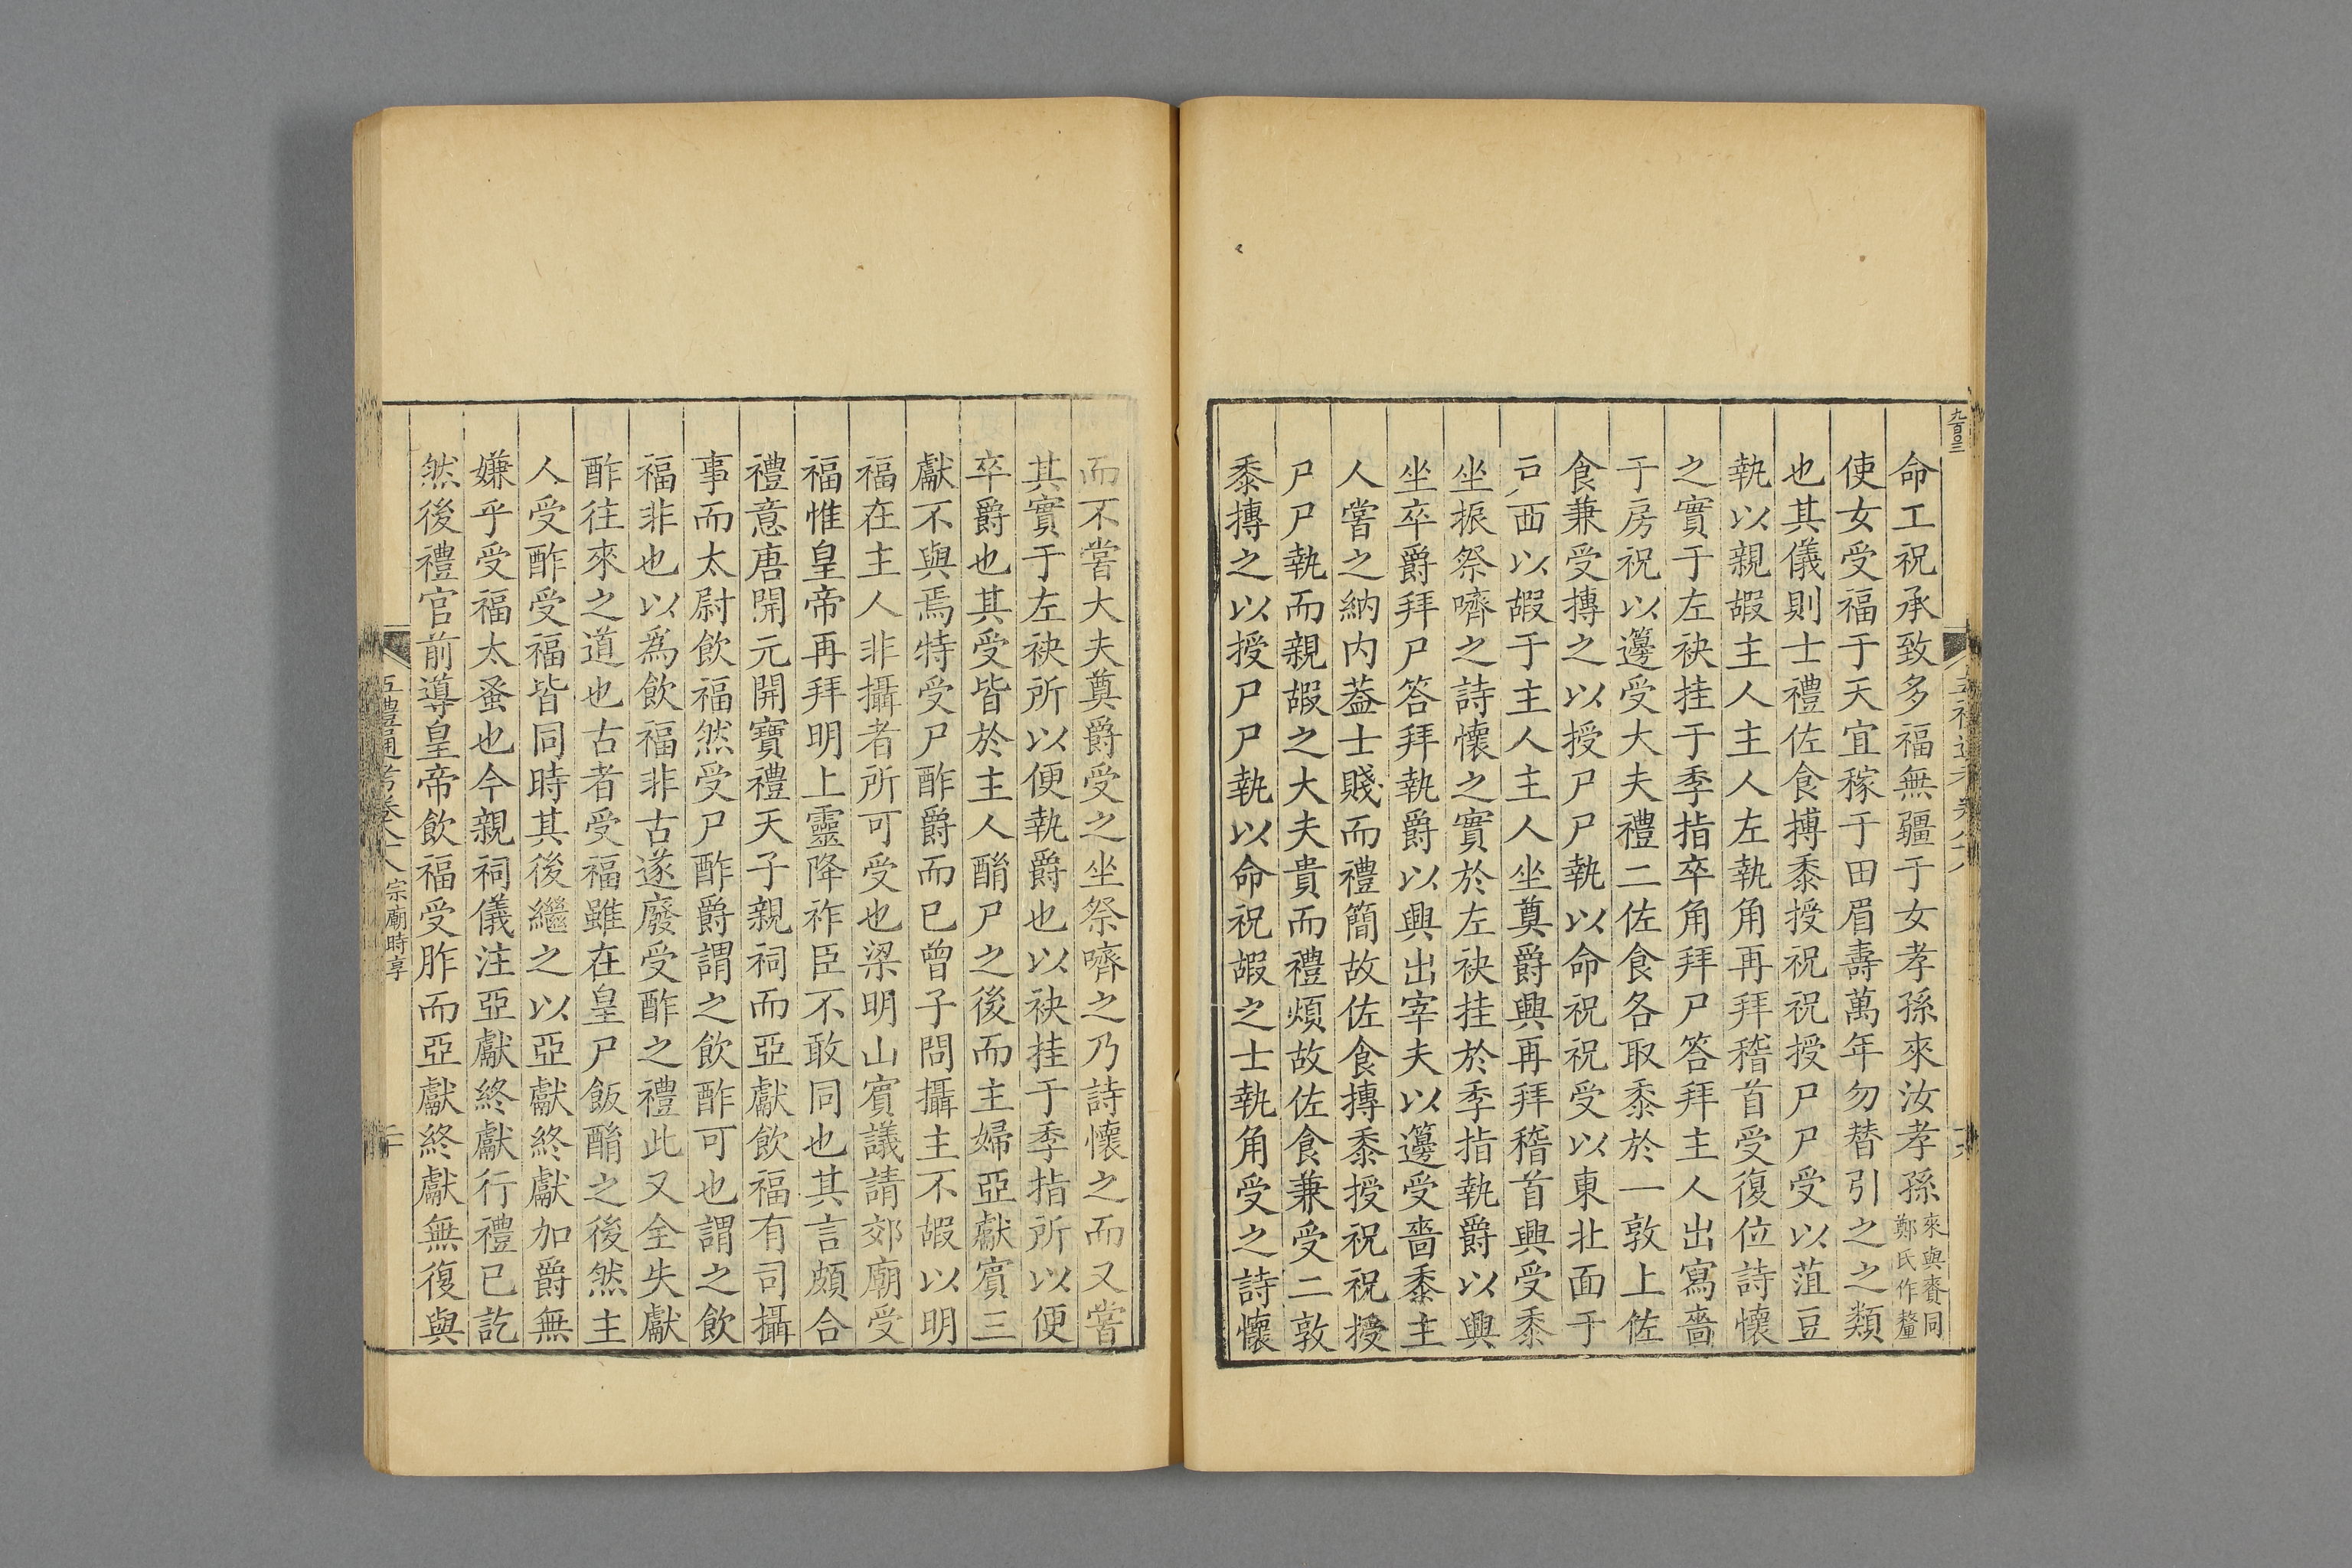 九百〇三
命工祝承致多福無疆于女孝孫來汝孝孫來與賚同鄭氏作釐
使女受福于天宜稼于田眉壽萬年勿替引之之類
也其儀則士禮佐食摶黍授祝祝授尸尸受以菹豆
執以親嘏主人主人左執角再拜稽首受復位詩懷
之實于左袂挂于季指卒角拜尸答拜主人出寫嗇
于房祝以籩受大夫禮二佐食各取黍於一敦上佐
食兼受摶之以授尸尸執以命祝祝受以東北面于
戸西以嘏于主人主人坐奠爵興再拜稽首興受黍
坐振祭嚌之詩懷之實於左袂挂於季指執爵以興
坐卒爵拜尸答拜執爵以興出宰夫以籩受嗇黍主
人嘗之納内葢士賤而禮簡故佐食摶黍授祝祝授
尸尸執而親嘏之大夫貴而禮煩故佐食兼受二敦
黍摶之以授尸尸執以命祝嘏之士執角受之詩懷
而不嘗大夫奠爵受之坐祭嚌之乃詩懷之而又嘗
其實于左袂所以便執爵也以袂挂于季指所以便
卒爵也其受皆於主人酳尸之後而主婦亞獻賓三
獻不與焉特受尸酢爵而已曾子問攝主不嘏以明
福在主人非攝者所可受也梁明山賓議請郊廟受
福惟皇帝再拜明上靈降祚臣不敢同也其言頗合
禮意唐開元開寶禮天子親祠而亞獻飲福有司攝
事而太尉飲福然受尸酢爵謂之飲酢可也謂之飲
福非也以爲飲福非古遂廢受酢之禮此又全失獻
酢往來之道也古者受福雖在皇尸飯酳之後然主
人受酢受福皆同時其後繼之以亞獻終獻加爵無
嫌乎受福太蚤也今親祠儀注亞獻終獻行禮已訖
然後禮官前導皇帝飲福受胙而亞獻終獻無復與
五禮通考卷八十八 宗廟時享